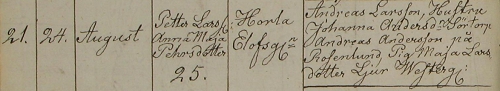 21. 24. August
Petter Larss:
Anna Maja
Pehrsdotter
25.
Horla
Elofsg:n
Andreas Larsson, Hustru
Johanna Andersdr Sörtorp
Andreas Andersson på
Rosenlund, Pig. Maja Lars
dotter Ljur Westerg: